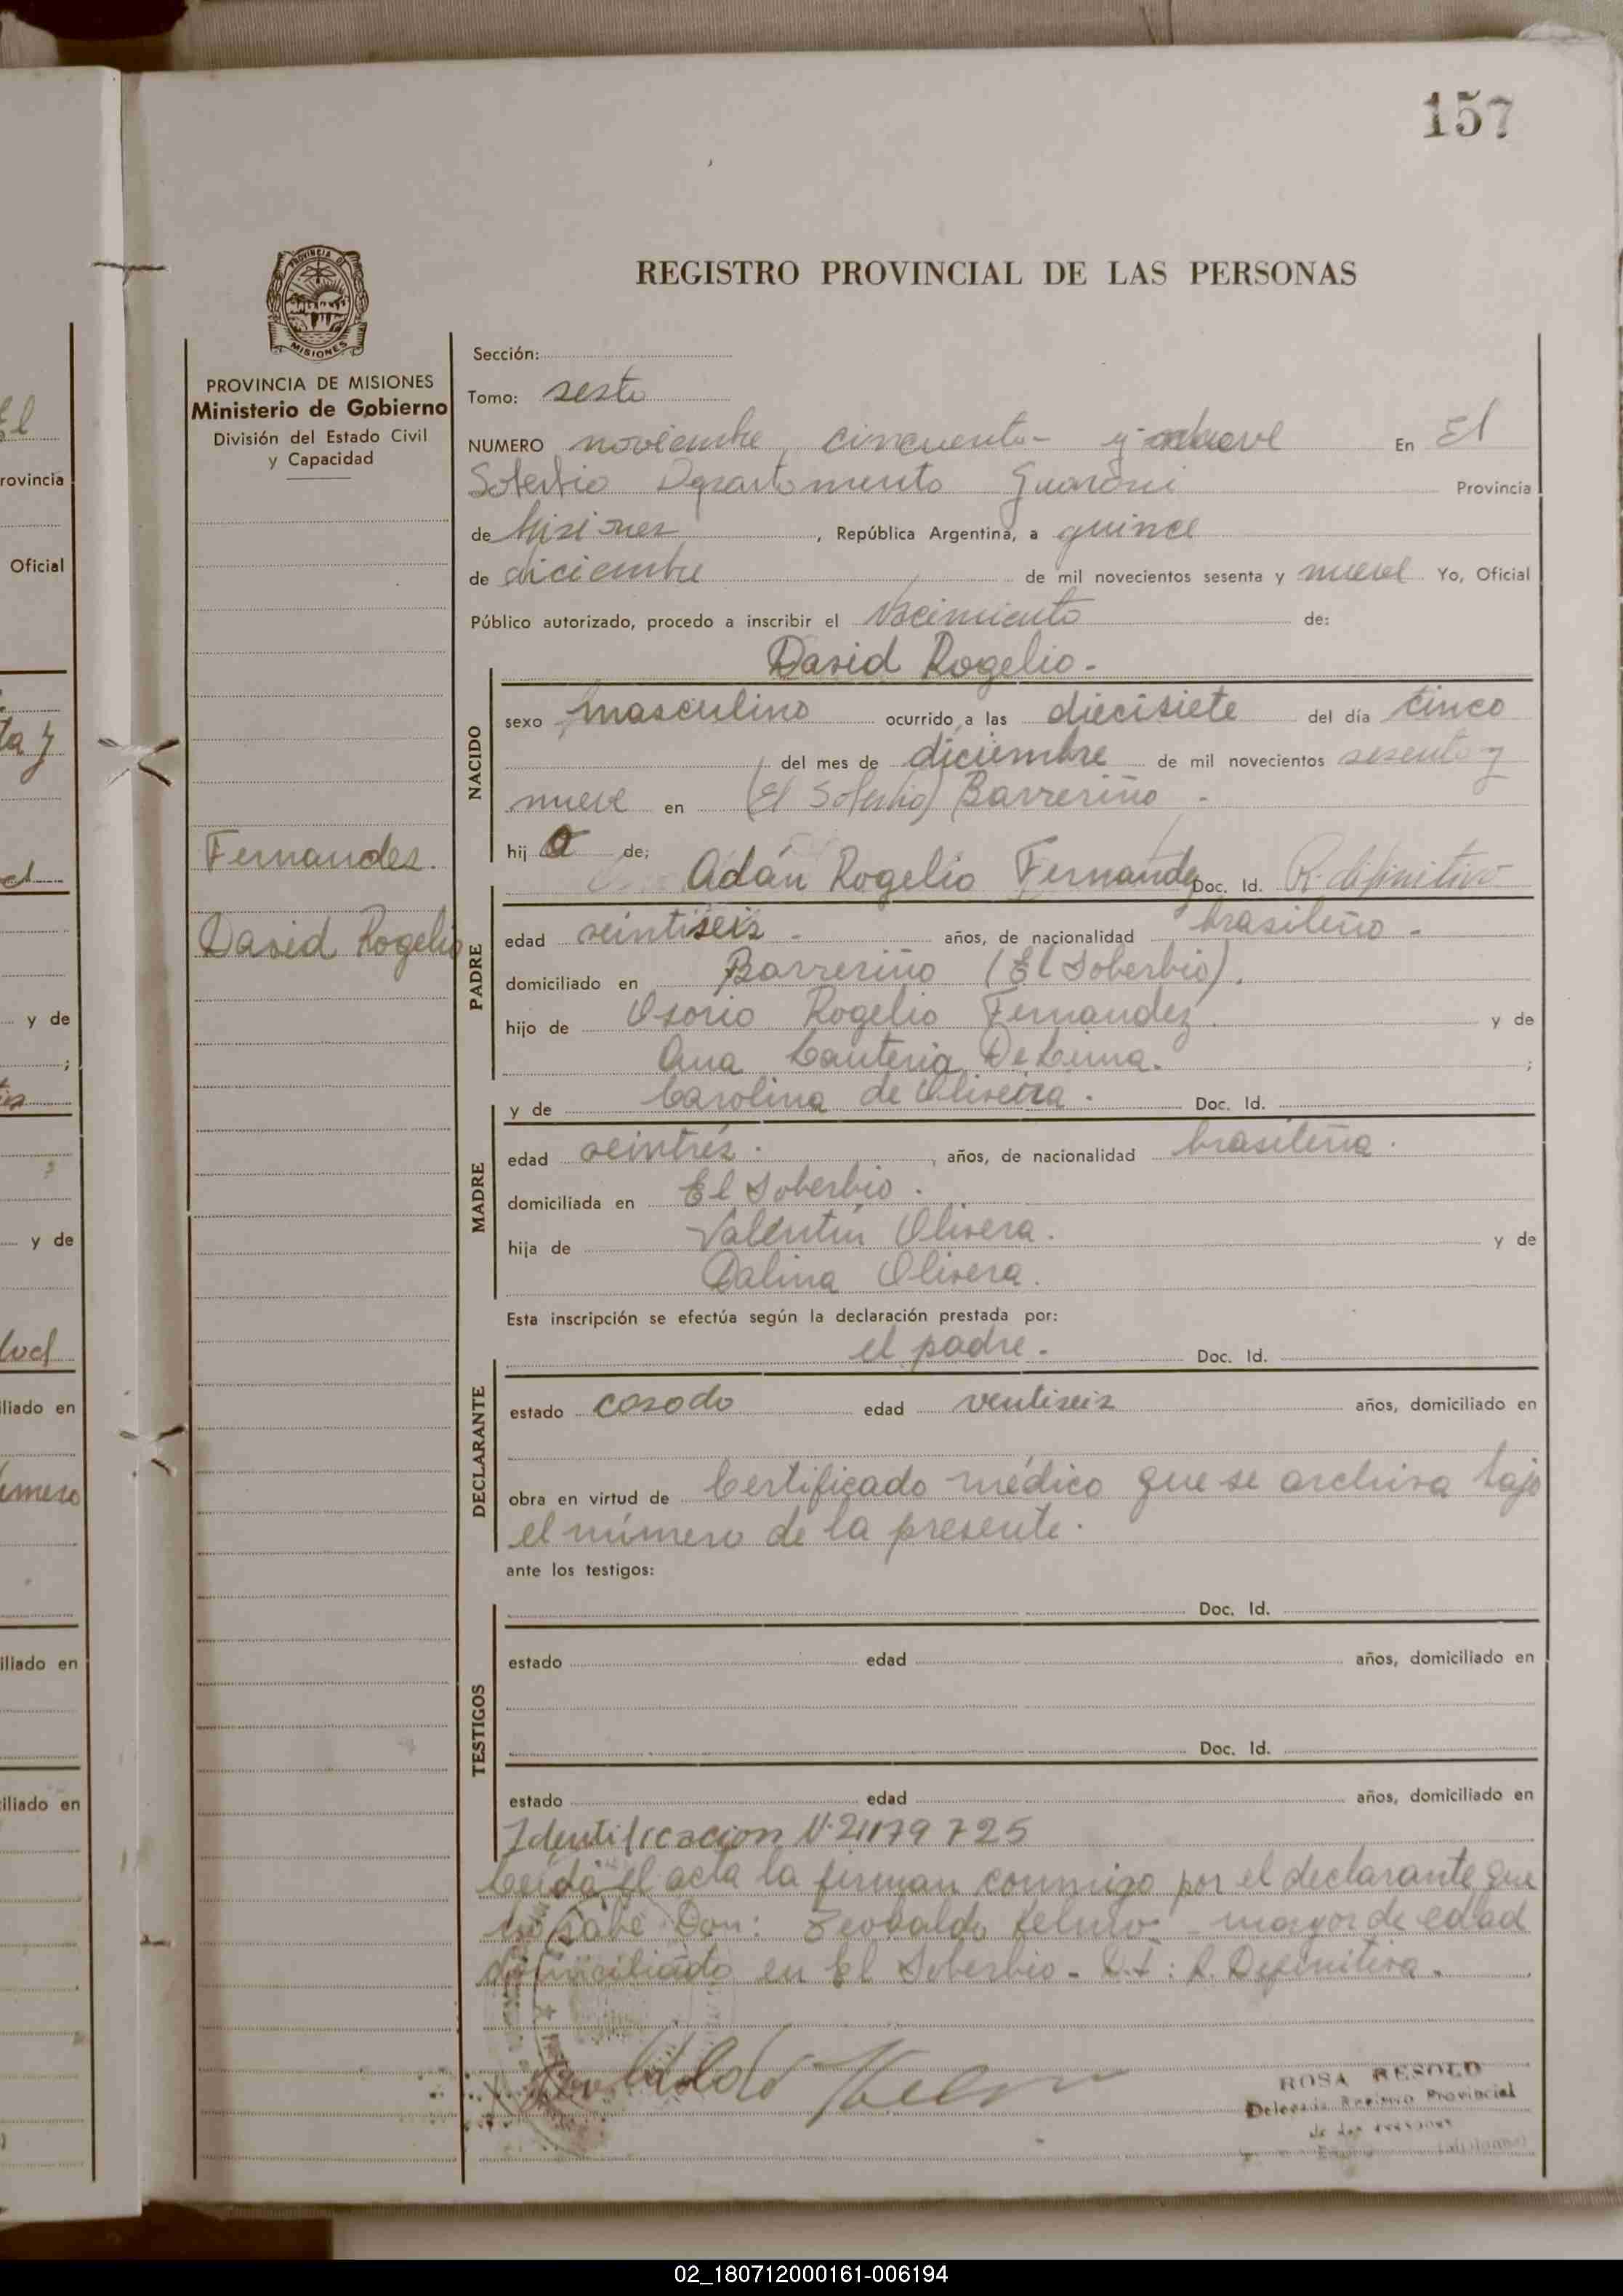 157
REGISTRO PROVINCIAL DE LAS PERSONAS
PROVINCIA DE MISIONES
MISIONES
PROVINCIA DE MISIONES
Ministerio de Gobierno
División del Estado Civil
y Capacidad
Fernandez.
David Rogelio
Sección:
Tomo: sesto
NUMERO noviembre, cincuenta - y nueve En El
Soberbio Departamento Guaraní Provincia
de Misiones, República Argentina, a quince
de diciembre de mil novecientos sesenta y nueve Yo, Oficial
Público autorizado, procedo a inscribir el Nacimiento de:
David Rogelio-
NACIDO
sexo masculino ocurrido a las diecisiete del día cinco
del mes de diciembre de mil novecientos sesenta y
nueve en (El Soberbio) Barreriño -
hij o de:
Adán Rogelio Fernandez Doc. Id. R. difinitivo
PADRE
edad veintiseis - años, de nacionalidad brasileño -
domiciliado en Barreriño (El Soberbio).
hijo de Osorio Rogelio Fernandez. y de
Ana Lauteria De Lima. ;
y de Carolina de Oliveira. Doc. Id.
MADRE
edad veintrés. años, de nacionalidad brasileña.
domiciliada en El Soberbio.
hija de Valentín Olivera. y de
Dalina Olivera.
Esta inscripción se efectúa según la declaración prestada por:
el padre. Doc. Id.
DECLARANTE
estado casado edad ventiseis años, domiciliado en
obra en virtud de Certificado médico que se archiva bajo
el número de la presente.
ante los testigos:
Doc. Id.
TESTIGOS
estado edad años, domiciliado en
Doc. Id.
estado edad años, domiciliado en
Identificacion N. 21179725
Leída el acta la firman conmigo por el declarante que
no sabe Don: mayor de edad
domiciliado en El Soberbio - D.I: R. Definitiva.
ROSA RESOLD
Delegada Registro Provincial
de las personas
(Misiones)
El
rovincia
Oficial
ta y
y de
;
y de
iliado en
iliado en
iliado en
02_180712000161-006194